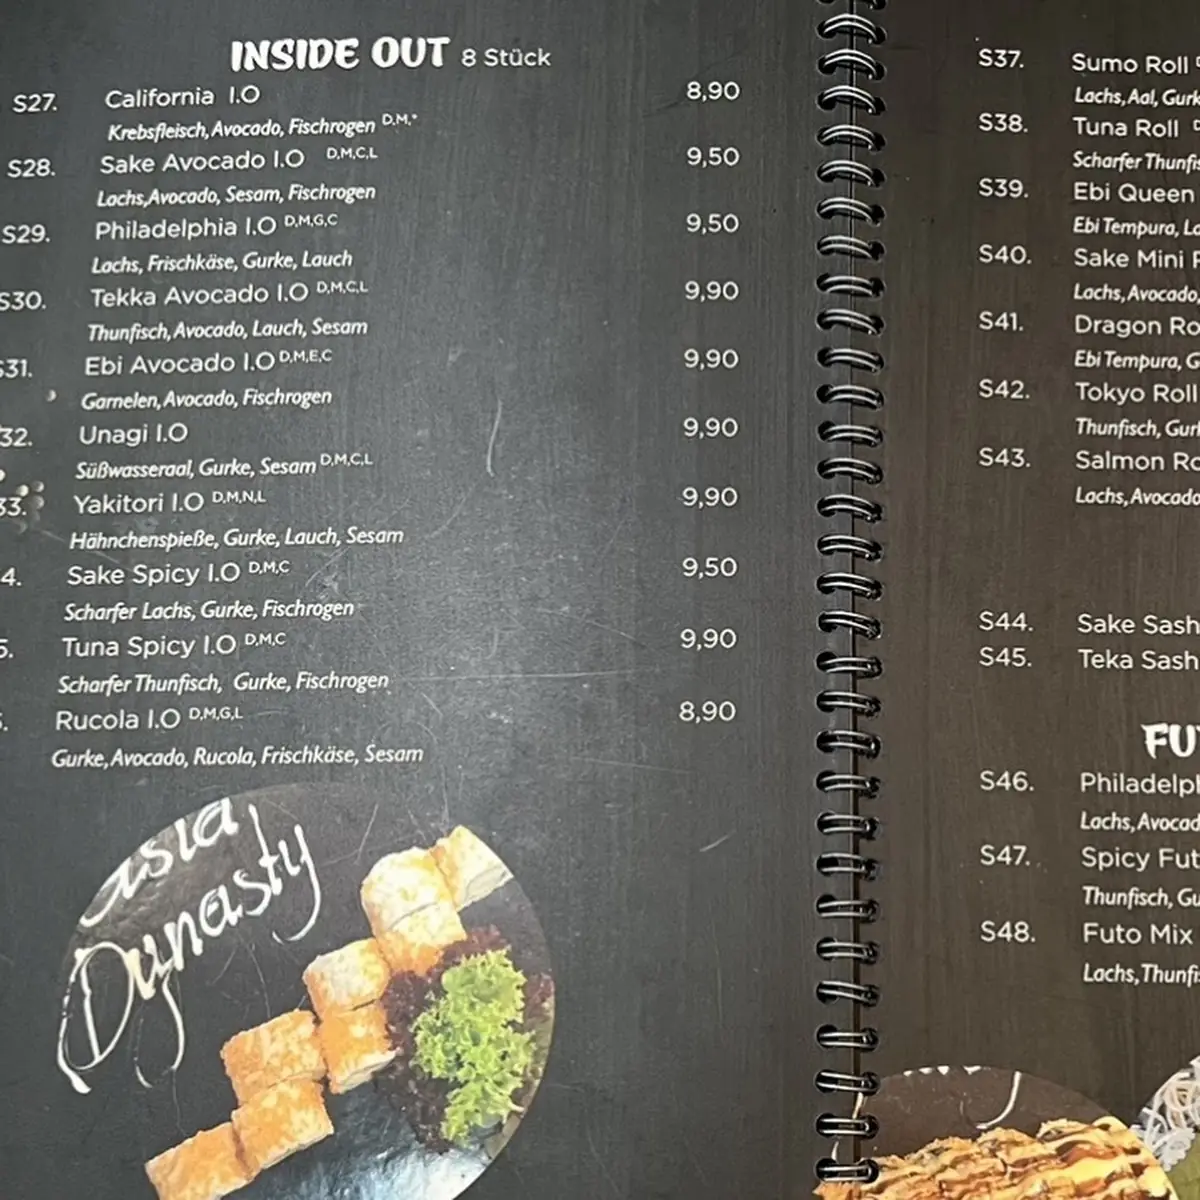 INSIDE OUT 8 Stück
S27. California I.O 8,90
Krebsfleisch, Avocado, Fischrogen D,M,*
S28. Sake Avocado I.O D,M,C,L 9,50
Lachs, Avocado, Sesam, Fischrogen
S29. Philadelphia I.O D,M,G,C 9,50
Lachs, Frischkäse, Gurke, Lauch
S30. Tekka Avocado I.O D,M,C,L 9,90
Thunfisch, Avocado, Lauch, Sesam
S31. Ebi Avocado I.O D,M,E,C 9,90
Garnelen, Avocado, Fischrogen
32. Unagi I.O 9,90
Süßwasseraal, Gurke, Sesam D,M,C,L
33. Yakitori I.O D,M,N,L 9,90
Hähnchenspieße, Gurke, Lauch, Sesam
4. Sake Spicy I.O D,M,C 9,50
Scharfer Lachs, Gurke, Fischrogen
5. Tuna Spicy I.O D,M,C 9,90
Scharfer Thunfisch, Gurke, Fischrogen
Rucola I.O D,M,G,L 8,90
Gurke, Avocado, Rucola, Frischkäse, Sesam
asia
Dynasty
S37. Sumo Roll
Lachs, Aal, Gurk
S38. Tuna Roll
Scharfer Thunfis
S39. Ebi Queen
Ebi Tempura, La
S40. Sake Mini
Lachs, Avocado,
S41. Dragon Ro
Ebi Tempura, G
S42. Tokyo Roll
Thunfisch, Gurk
S43. Salmon Ro
Lachs, Avocado
S44. Sake Sash
S45. Teka Sash
FUT
S46. Philadelph
Lachs, Avocad
S47. Spicy Fut
Thunfisch, Gu
S48. Futo Mix
Lachs, Thunfis